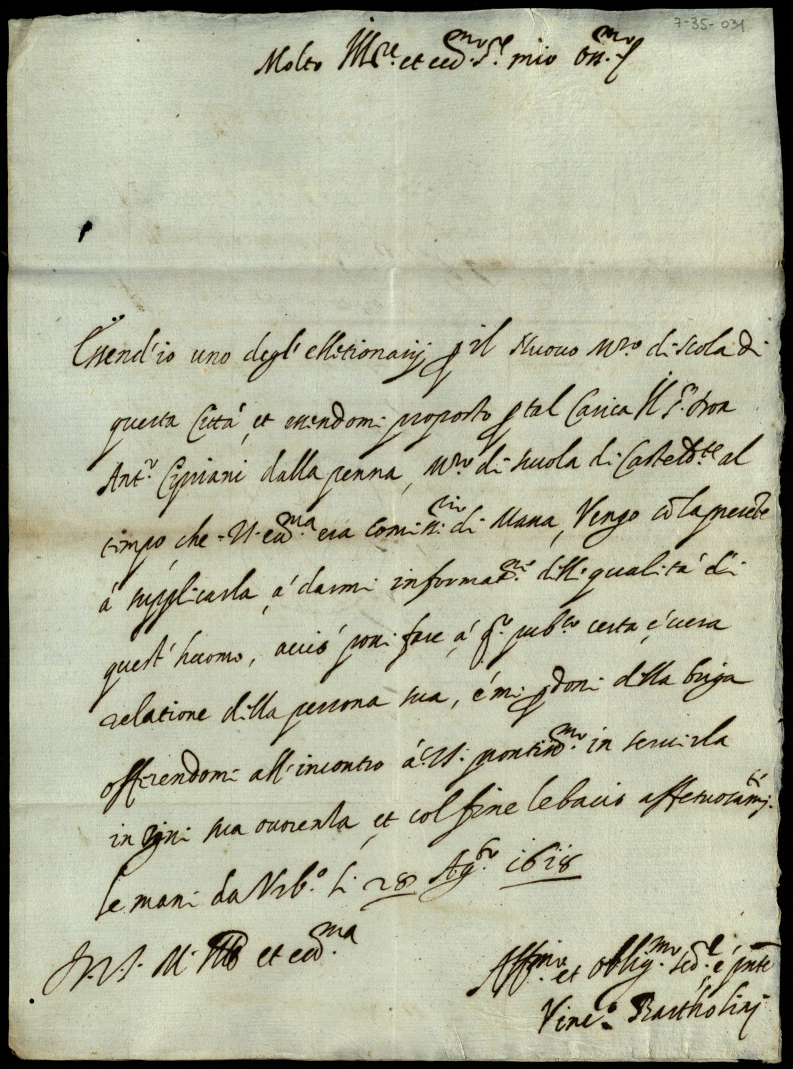 7-35-031
Molto Ill.re et ecc.mo S.r mio oss.mo
Essend'io uno degl' ellettionarij p il nuovo M.ro di scola di
questa Città, et essendomi proposto p tal carica Il S.r Don
Ant.o Cipriani dalla penna, M.ro di scuola di Casteld.te al
tempo, che V.S. ecc.ma era Comiss.rio di Massa, Vengo cõ la presẽte
à supplicarla, à darmi informat.ne delle qualità di
quest' huomo, acciò possi fare, à q.o pub.co certa, è vera
relatione della persona sua, è mi p doni della briga
offerendomi all'incontro à V.S. prontiss.mo in servirla
in ogni sua occorenza, et col fine le bacio affetuosam.te
le mani da Urb.o li 28 Ag.to 1618
D. V. S. M. Ill.e et ecc.ma
Aff.mo et oblig.mo ser.e è pñte
Vinc.o Bartholinj